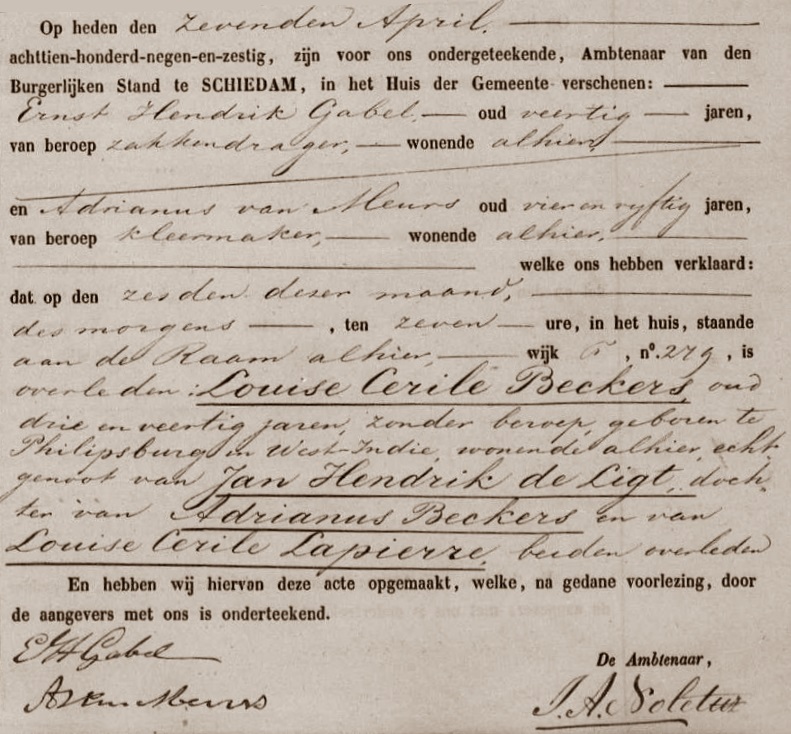 Op heden den zevenden April.
achttien-honderd-negen-en-zestig, zijn voor ons ondergeteekende, Ambtenaar van den
Burgerlijken Stand te SCHIEDAM, in het Huis der Gemeente verschenen:
Ernst Hendrik Gabel oud veertig jaren,
van beroep zakkendrager, wonende alhier,
en Adrianus van Meurs oud vier en vyftig jaren,
van beroep kleermaker, wonende alhier,
welke ons hebben verklaard:
dat op den zesden dezer maand,
des morgens, ten zeven ure, in het huis, staande
aan de Raam alhier, wijk F, no. 279, is
overleden: Louise Cerile Beckers, oud
drie en veertig jaren, zonder beroep, geboren te
Philipsburg in West-Indie, wonende alhier, echt-
genoot van Jan Hendrik de Ligt, doch-
ter van Adrianus Beckers en van
Louise Cerile Lapierre, beiden overleden
En hebben wij hiervan deze acte opgemaakt, welke, na gedane voorlezing, door
de aangevers met ons is onderteekend.
EHGabel
De Ambtenaar,
Meurs